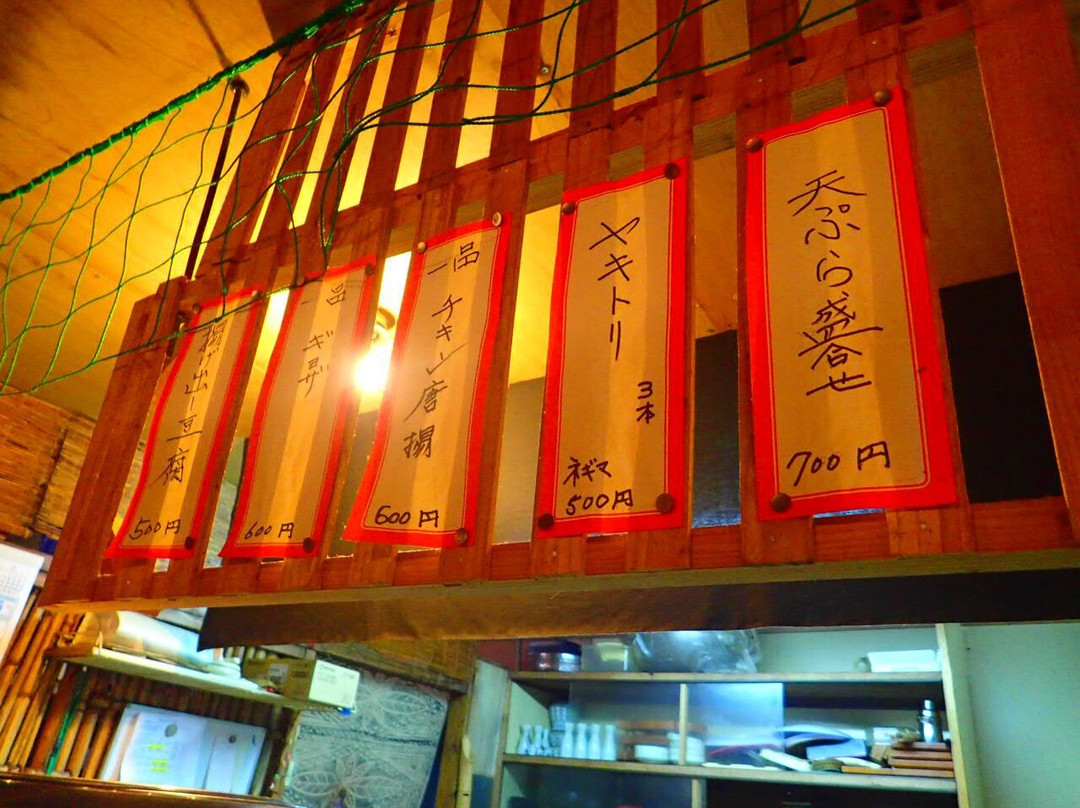 天ぷら盛合せ
700円
ヤキトリ
3本
ネギマ
500円
一品
チキン唐揚
600円
一品
ギョーザ
600円
揚げ出し豆腐
500円